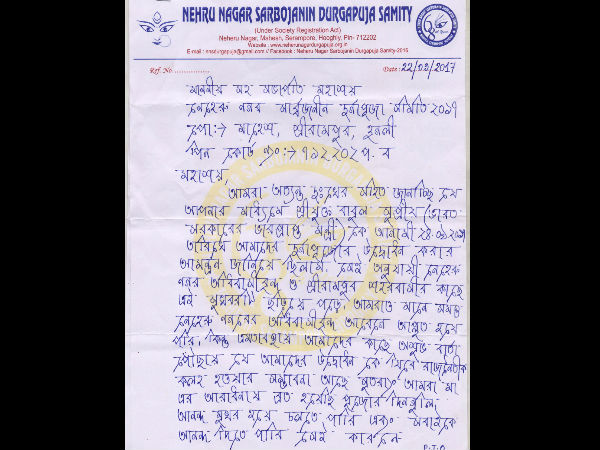 NEHRU NAGAR SARBOJANIN DURGAPUJA SAMITY
(Under Society Registration Act)
Neheru Nagar, Mahesh, Serampore, Hooghly, Pin- 712202
Website : www.neherunagardurgapuja.org.in
E-mail : nnsdurgapuja@gmail.com // Facebook : Neheru Nagar Sarbojanin Durgapuja Samity-2016
Ref. No. ..................
Date : 22/09/2017
মাননীয় সহ সভাপতি মহাশয়
নেহেরু নগর সার্বজনীন দুর্গাপূজা সমিতি ২০১৭
পোঃ→ মাহেশ, শ্রীরামপুর, হুগলী
পিন কোড নং:→ ৭১২২০২ প. ব
মহাশয়,
আমরা অত্যন্ত দুঃখের সহিত জানাচ্ছি যে
আপনার মাধ্যমে শ্রীযুক্ত বাবুল সুপ্রীয় (ভারত
সরকারের ভারপ্রাপ্ত মন্ত্রী) কে আগামী ২৪.০৯.২০১৭
তারিখে আমাদের দুর্গাপূজোর উদ্বোধন করার
আমন্ত্রন জানিয়ে ছিলাম। সেই অনুযায়ী নেহেরু
নগর অধিবাসীবৃন্দ ও শ্রীরামপুর শহরবাসীর কাছে
এই সুখবরটি ছড়িয়ে পড়ে, আমরাও মানে সমস্ত
নেহেরু নগরের অধিবাসীবৃন্দ আবেগে আপ্লুত হয়ে
পরি, কিন্তু এমতাবস্থায় আমাদের কাছে অশুভ বার্তা
পৌঁছায় যে আমাদের উদ্বোধন কে ঘিরে রাজনৈতিক
কলহ হওয়ার সম্ভাবনা আছে সুতরাং আমরা মা
এর আরাধনায় ব্রত হয়েছি পুজোর দিনগুলি
আনন্দ মুখর হয়ে চলতে পারি এবং সবাইকে
আনন্দ দিতে পারি সেই কারনে
P.T.O